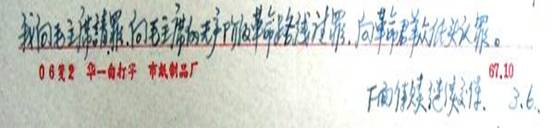 我向毛主席請罪.向毛主席的无产阶级革命路线请罪.向革命群众低头认罪。
06受2 华一白打字 市纸制品厂 67.10
下面继续 3.6.